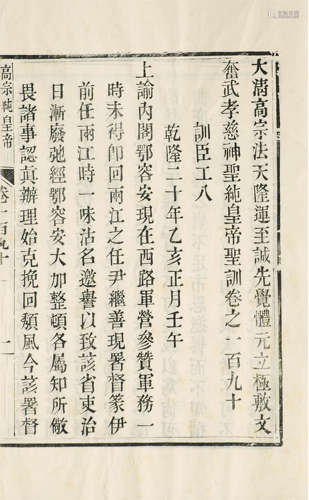 大清高宗法天隆運至誠先覺體元立極敷文
奮武孝慈神聖純皇帝聖訓卷之一百九十
訓臣工八
乾隆二十年乙亥正月壬午
上諭內閣鄂容安現在西路軍營參贊軍務一
時未得卽回兩江之任尹繼善現署督篆伊
前任兩江時一味沽名邀譽以致該省吏治
日漸廢弛經鄂容安大加整頓各屬知所儆
畏諸事認眞辦理始克挽回頽風今該署督
高宗純皇帝
卷一百九十
一